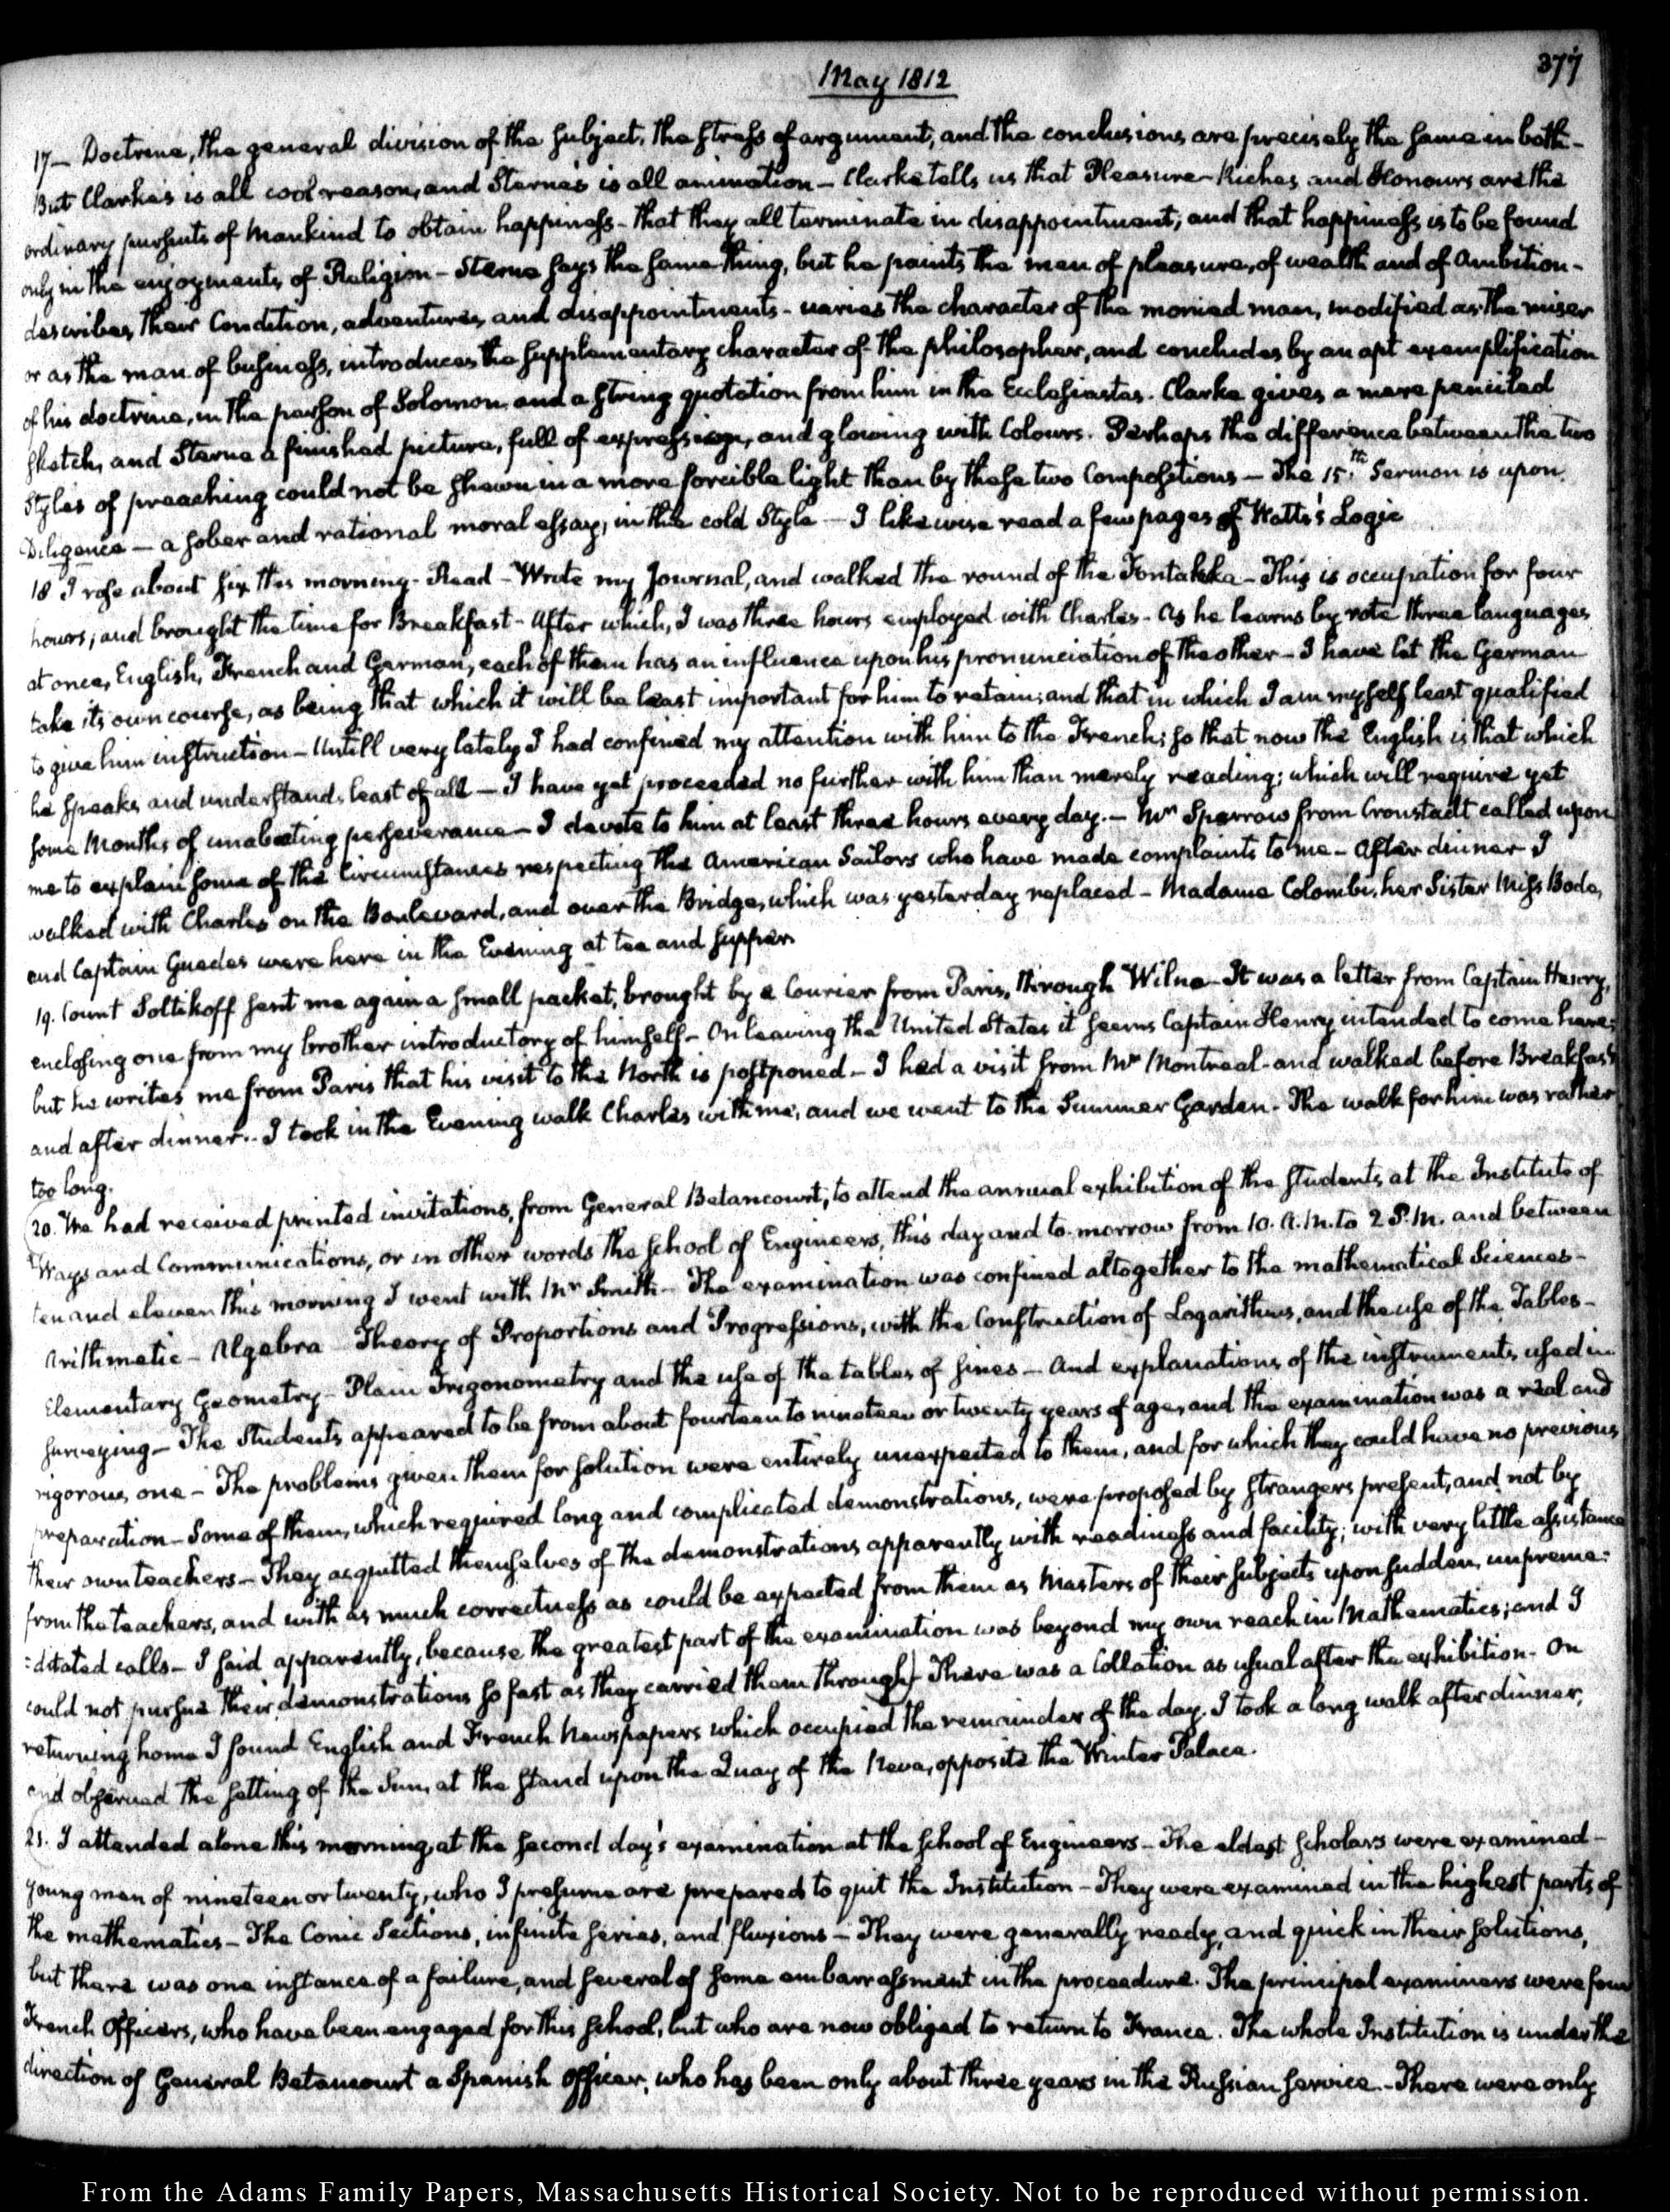 377
May 1812
17— Doctrine, the general division of the subject, the stress of argument, and the conclusions are precisely the same in both-
But Clarke's is all cool reason, and Sterne's is all animation— Clarke tells us that Pleasure- Riches and Honours are the
ordinary pursuits of Mankind to obtain happiness- that they all terminate in disappointment, and that happiness is to be found
only in the enjoyments of Religion- Sterne says the same thing, but he paints the man of pleasure, of wealth and of Ambition-
describes their Condition, adventures, and disappointments- varies the character of the monied man, modified as the miser
or as the man of business, introduces the supplementary character of the philosopher, and concludes by an apt exemplification
of his doctrine, in the person of Solomon and a string quotation from him in the Ecclesiastes. Clarke gives a mere penciled
sketch, and Sterne a finished picture, full of expression, and glowing with Colours. Perhaps the difference between the two
Styles of preaching could not be shewn in a more forcible light than by these two Compositions— The 15th. Sermon is upon
Diligence— a sober and rational moral essay, in the cold Style— I likewise read a few pages of Watts's Logic
18 I rose about six this morning- Read- Wrote my Journal, and walked the round of the Fontakka- This is occupation for four
hours; and brought the time for Breakfast- After which, I was three hours employed with Charles- As he learns by rote three languages
at once, English, French and German, each of them has an influence upon his pronunciation of the other- I have let the German
take its own course, as being that which it will be least important for him to retain; and that in which I am myself least qualified
to give him instruction- Untill very lately I had confined my attention with him to the French; so that now the English is that which
he speaks and understands least of all— I have yet proceeded no further with him than merely reading; which will require yet
some Months of unabating perseverance— I devote to him at least three hours every day.— Mr Sparrow from Cronstadt called upon
me to explain some of the Circumstances respecting the American Sailors who have made complaints to me- After dinner I
walked with Charles on the Boulevard, and over the Bridge, which was yesterday replaced- Madame Colombi, her Sister Miss Bode,
and Captain Guedes were here in the Evening at tea and supper.
19. Count Soltikoff sent me again a small packet, brought by a Courier from Paris, through Wilna- It was a letter from Captain Henry,
enclosing one from my brother introductory of himself- On leaving the United States it seems Captain Henry intended to come here;
but he writes me from Paris that his visit to the North is postponed- I had a visit from Mr Montreal- and walked before Breakfast
and after dinner.- I took in the Evening walk Charles with me, and we went to the Summer Garden- The walk for him was rather
too long.
20. We had received printed invitations, from General Betancourt, to attend the annual exhibition of the Students at the Institute of
Ways and Communications, or in other words the School of Engineers, this day and to-morrow from 10. A.M. to 2 P.M. and between
ten and eleven this morning I went with Mr Smith- The examination was confined altogether to the mathematical Sciences-
Arithmetic- Algebra- Theory of Proportions and Progressions, with the Construction of Logarithms, and the use of the Tables-
Elementary Geometry- Plain Trigonometry and the use of the tables of sines- And explanations of the instruments used in
surveying- The Students appeared to be from about fourteen to nineteen or twenty years of age, and the examination was a real and
rigorous one- The problems given them for solution were entirely unexpected to them, and for which they could have no previous
preparation- Some of them, which required long and complicated demonstrations, were proposed by strangers present, and not by
their own teachers- They acquitted themselves of the demonstrations apparently with readiness and facility; with very little assistance
from the teachers, and with as much correctness as could be expected from them as Masters of their subjects upon sudden, unpreme:
:ditated calls- I said apparently, because the greatest part of the examination was beyond my own reach in Mathematics; and I
could not pursue their demonstrations so fast as they carried them through) There was a Collation as usual after the exhibition- On
returning home I found English and French Newspapers which occupied the remainder of the day. I took a long walk after dinner,
and observed the setting of the Sun, at the stand upon the Quay of the Neva, opposite the Winter Palace.
21. I attended alone this morning, at the second day's examination at the School of Engineers- The eldest scholars were examined-
young men of nineteen or twenty, who I presume are prepared to quit the Institution- They were examined in the highest parts of
the mathematics- The Conic Sections, infinite series, and fluxions- They were generally ready, and quick in their solutions,
but there was one instance of a failure, and several of some embarrassment in the proceedure. The principal examiners were four
French Officers, who have been engaged for this school, but who are now obliged to return to France. The whole Institution is under the
direction of General Betancourt a Spanish Officer, who has been only about three years in the Russian service.- There were only
From the Adams Family Papers, Massachusetts Historical Society. Not to be reproduced without permission.